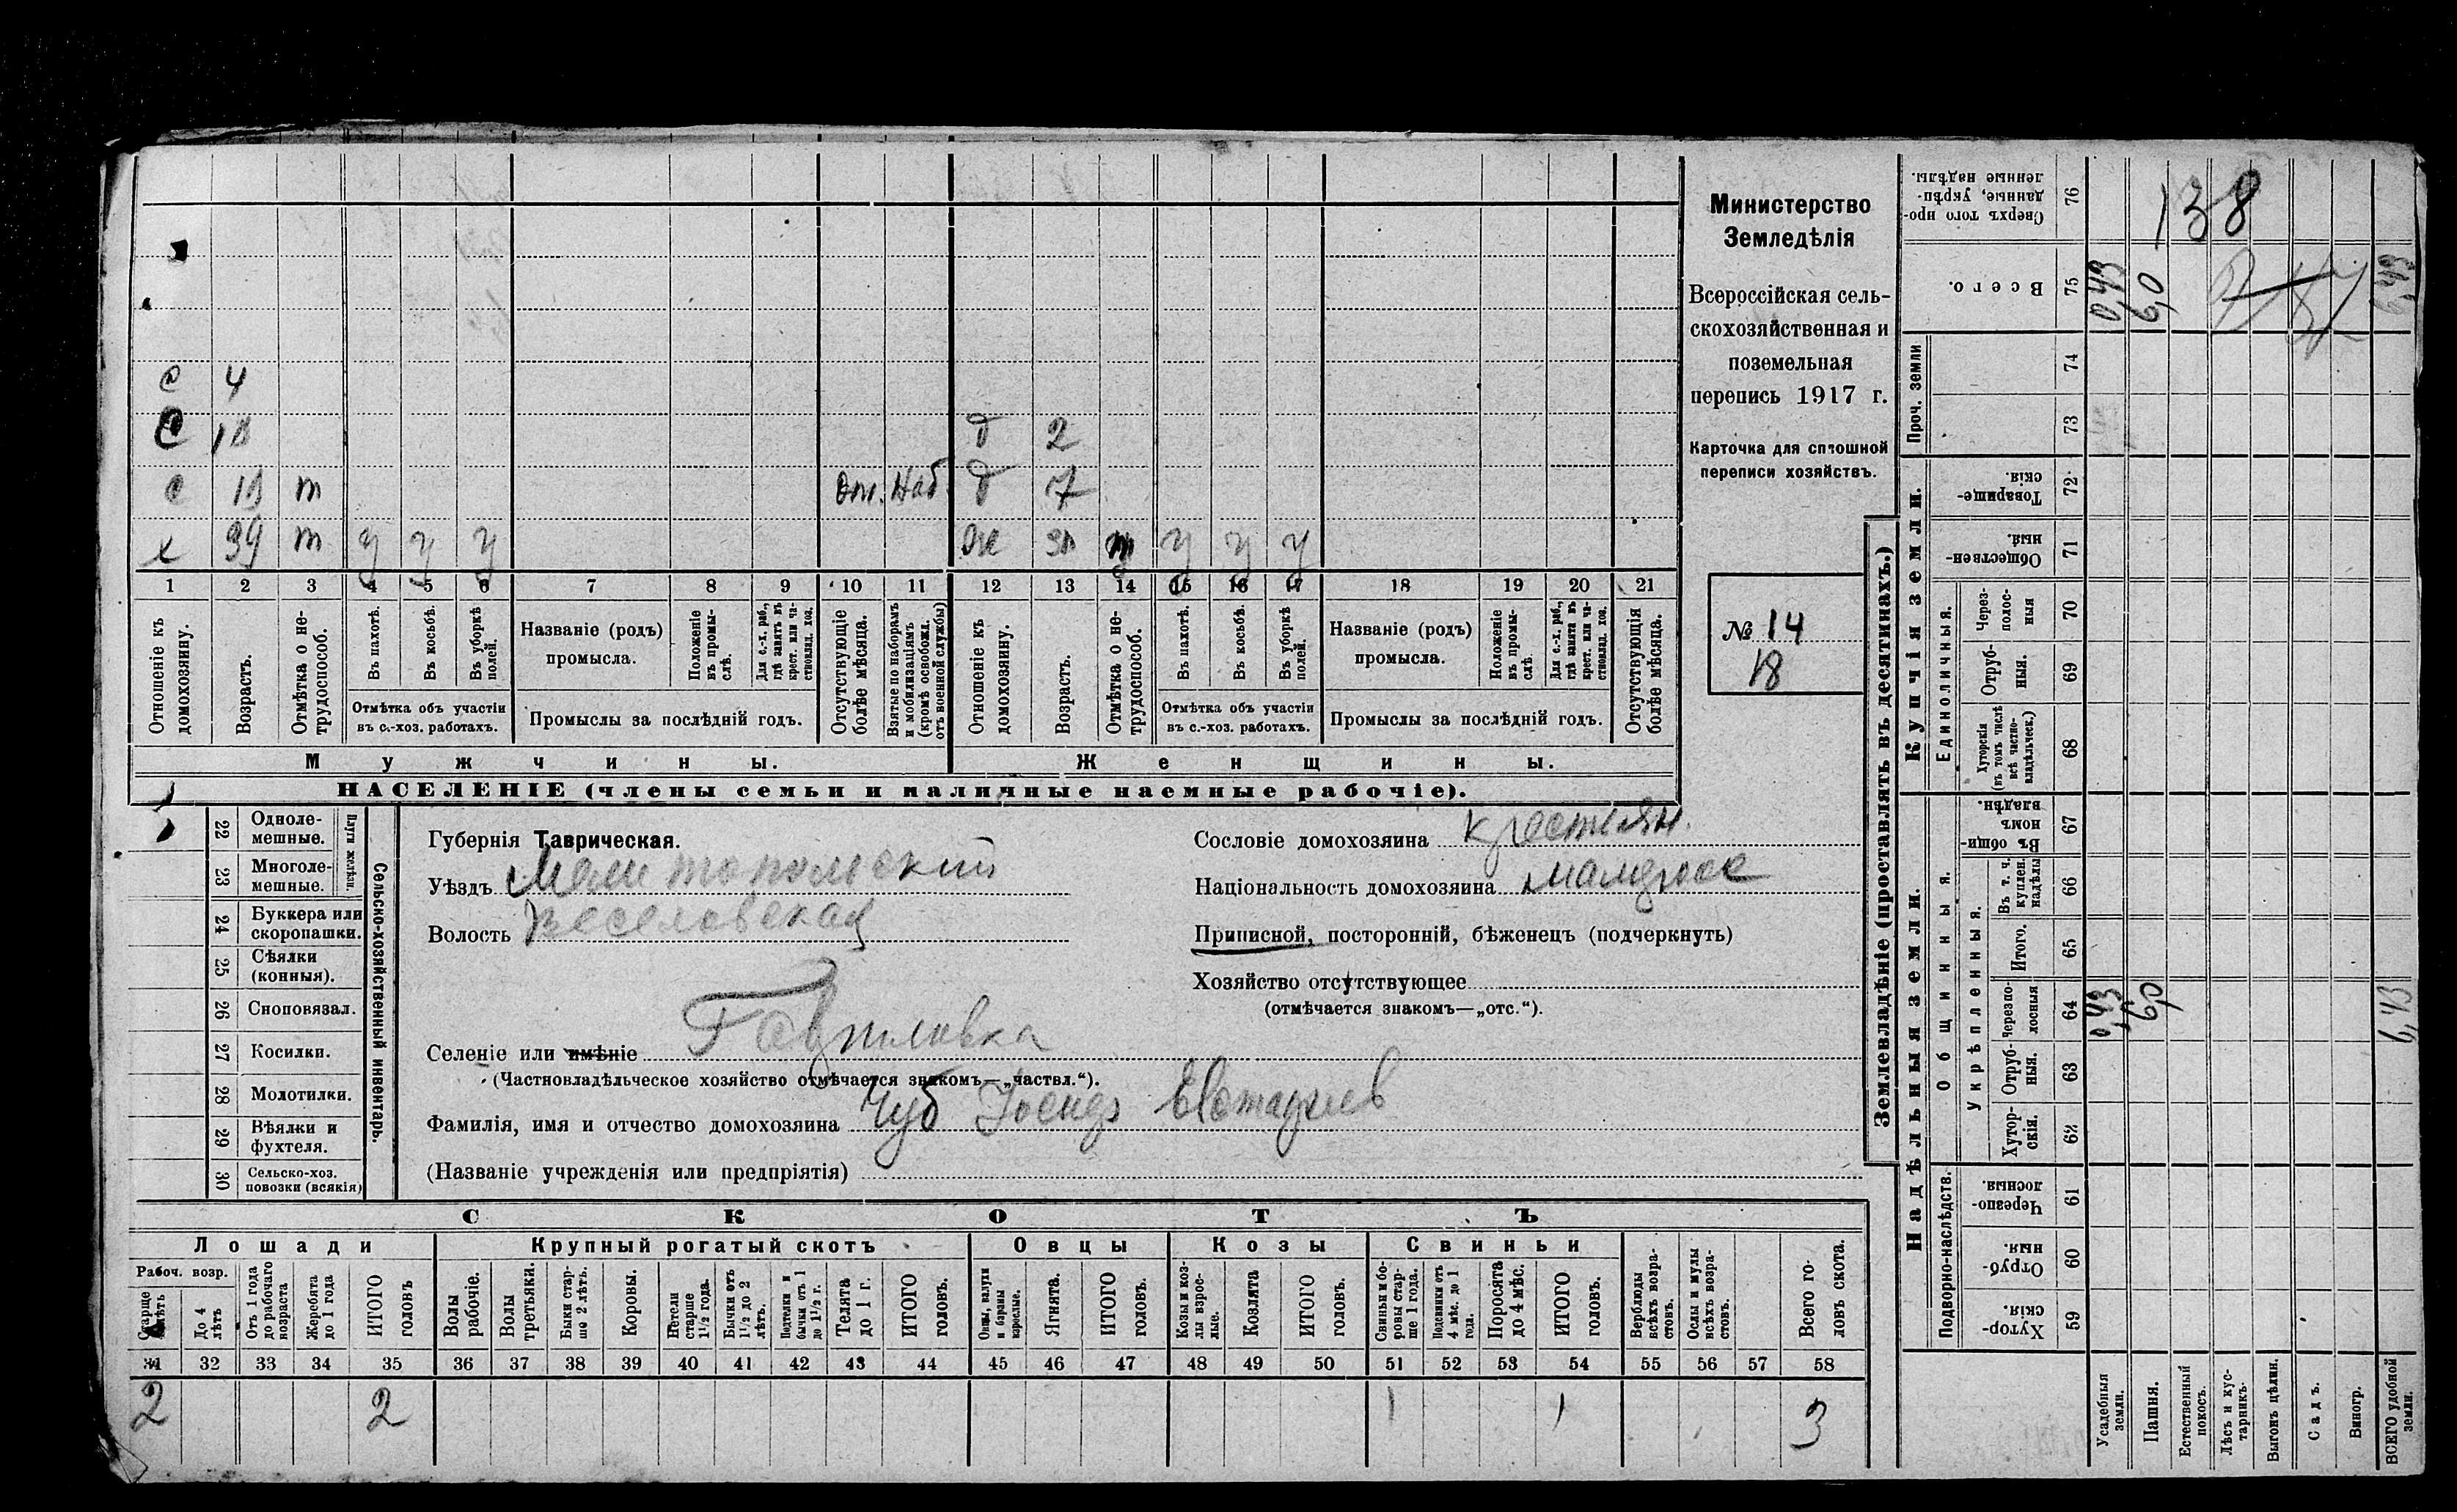 Министерство
Земледѣлія
Всероссійская сель-
скохозяйственная и
поземельная
перепись 1917 г.
Карточка для сплошной
переписи хозяйствъ.
№ 14
18
с 4
с
д 2
с m От. Наб. д 7
х 39 m у у у ж m у у у
1 2 3 4 5 6 7 8 9 10 11 12 13 14 15 16 17 18 19 20 21
Отношеніе къ домохозяину.
Возрастъ.
Отмѣтка о не-трудоспособ.
Въ пахотѣ.
Въ косьбѣ.
Въ уборкѣ полей.
Отмѣтка объ участіи
въ с.-хоз. работахъ.
Названіе (родъ)
промысла.
Положеніе въ промы-слѣ.
Для с.-х. раб., гдѣ занятъ въ крест. или ча-стновлад. хоз.
Промыслы за послѣдній годъ.
Отсутствующіе болѣе мѣсяца.
Взятые по наборамъ и мобилизаціямъ (кромѣ освобожд. отъ военной службы)
Отношеніе къ домохозяину.
Возрастъ.
Отмѣтка о не-трудоспособ.
Въ пахотѣ.
Въ косьбѣ.
Въ уборкѣ полей.
Отмѣтка объ участіи
въ с.-хоз. работахъ.
Названіе (родъ)
промысла.
Положеніе въ промы-слѣ.
Для с.-х. раб., гдѣ занята въ крест. или ча-стновлад. хоз.
Промыслы за послѣдній годъ.
Отсутствующія болѣе мѣсяца.
Мужчины.
Женщины.
НАСЕЛЕНІЕ (члены семьи и наличные наемные рабочіе).
22 Одноле-мешные.
23 Многоле-мешные.
Плуги желѣзн.
24 Буккера или скоропашки.
25 Сѣялки (конныя).
26 Сноповязал.
27 Косилки.
28 Молотилки.
29 Вѣялки и фухтеля.
30 Сельско-хоз. повозки (всякія)
Сельско-хозяйственный инвентарь.
Губернія Таврическая.
Уѣздъ Мелитопольский
Волость Веселовская
Селеніе или имѣніе Гавриловка
(Частновладѣльческое хозяйство отмѣчается знакомъ—„частвл.“).
Фамилія, имя и отчество домохозяина Чуб Иосиф Евстафиев
(Названіе учрежденія или предпріятія)
Сословіе домохозяина крестьян.
Національность домохозяина малорос
Приписной, посторонній, бѣженецъ (подчеркнуть)
Хозяйство отсутствующее
(отмѣчается знакомъ—„отс.“).
СКОТЪ
Лошади Крупный рогатый скотъ Овцы Козы Свиньи
Рабоч. возр.
Старше 4 лѣтъ
До 4 лѣтъ
Отъ 1 года до рабочаго возраста
Жеребята до 1 года
ИТОГО головъ
Волы рабочіе.
Волы третьяки.
Быки стар-ше 2 лѣтъ.
Коровы.
Нетели старше 1½ года.
Бычки отъ 1½ до 2 лѣтъ.
Подтелки и бычки отъ 1 до 1½ г.
Телята до 1 г.
ИТОГО головъ.
Овцы, валухи и бараны взрослые.
Ягнята.
ИТОГО головъ.
Козы и коз-лы взрос-лые.
Козлята
ИТОГО головъ.
Свиньи и бо-ровы стар-ше 1 года.
Подсвинки отъ 4 мѣс. до 1 года.
Поросята до 4 мѣс.
ИТОГО головъ.
Верблюды всѣхъ возра-стовъ.
Ослы и мулы всѣхъ возра-стовъ.
Всего го-ловъ скота.
31 32 33 34 35 36 37 38 39 40 41 42 43 44 45 46 47 48 49 50 51 52 53 54 55 56 57 58
2 2 1 1 3
Землевладѣніе (проставлять въ десятинахъ.)
Надѣльныя земли. Купчія земли. Проч. земли
Подворно-наслѣдств.
Общинныя.
Укрѣпленныя.
Единоличныя.
76 Сверхъ того про-данные, укрѣп-ленные надѣлы.
138
75 Всего. 0,43 6,0 6,43
74
73
72 Товарище-скія.
71 Обществен-ныя.
70 Через-полос-ныя
69 Отруб-ныя.
68 Хуторскія (въ томъ числѣ всѣ частно-владѣльческ.)
67 Въ общи-номъ владѣн.
66 Въ т. ч. куплен. надѣлы
65 Итого.
64 Черезпо-лосныя 0,43 6,0 6,43
63 Отруб-ныя.
62 Хутор-скія.
61 Черезпо-лосныя.
60 Отруб-ныя.
59 Хутор-скія.
Усадебныя земли.
Пашня.
Естественный покосъ.
Лѣсъ и кус-тарникъ.
Выгонъ цѣлин.
Садъ.
Виногр.
ВСЕГО удобной земли.